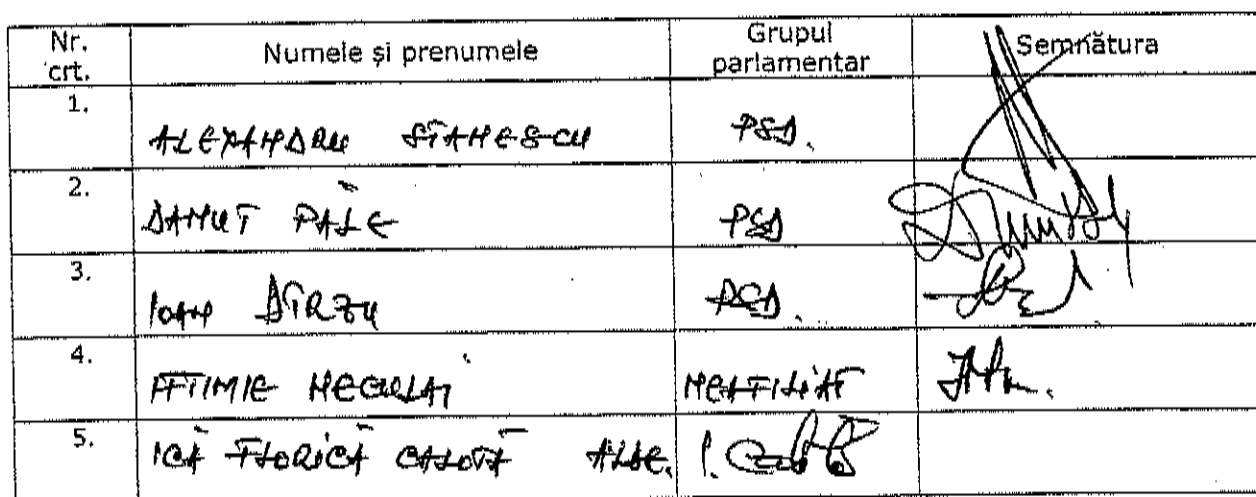 Nr. crt. Numele și prenumele Grupul parlamentar Semnătura
1. ALEXANDRU STANESCU PSD.
2. DANUT PĂLE PSD
3. IOAN DÎRZU PSD.
4. IFTIMIE NECULAI NEAFILIAT
5. ICĂ FLORICĂ CALOTĂ ALDE.